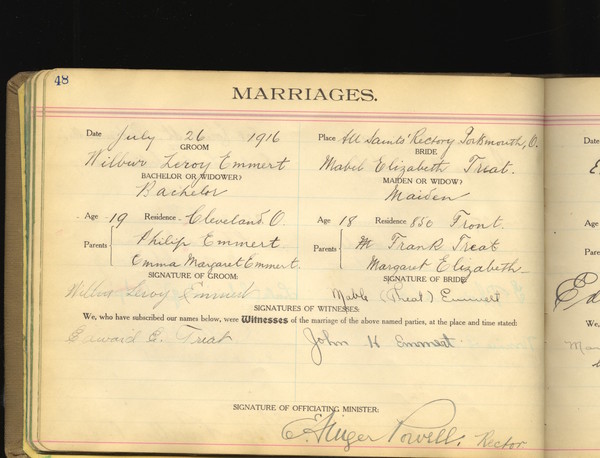 48
MARRIAGES.
Date July 26 1916 Place All Saints' Rectory Portsmouth, O.
GROOM BRIDE
Wilbur Leroy Emmert Mabel Elizabeth Treat.
BACHELOR OR WIDOWER? MAIDEN OR WIDOW?
Bachelor Maiden
Age 19 Residence Cleveland. O. Age 18 Residence 850 Front.
Parents Philip Emmert Parents Frank Treat
Emma Margaret Emmert. Margaret Elizabeth
SIGNATURE OF GROOM: SIGNATURE OF BRIDE
Wilbur Leroy Emmert Mable (Treat) Emmert
SIGNATURES OF WITNESSES:
We, who have subscribed our names below, were Witnesses of the marriage of the above named parties, at the place and time stated:
Edward E. Treat John K Emmert
SIGNATURE OF OFFICIATING MINISTER:
Powell, Rector
Date
Age
Paren